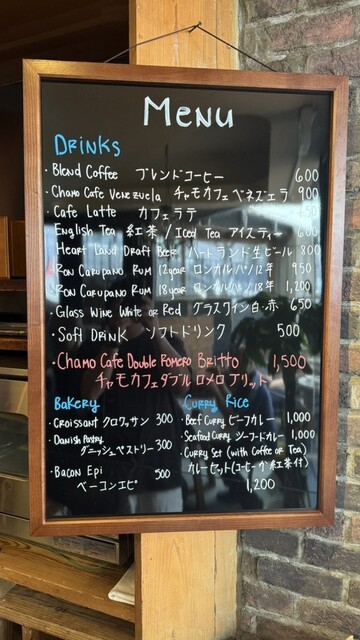 Menu
Drinks
・Blend Coffee ブレンドコーヒー 600
・Chamo Cafe Venezuela チャモカフェベネズェラ 900
・Cafe Latte カフェラテ
English Tea 紅茶 / Iced Tea アイスティー 600
Heart Land Draft Beer ハートランド生ビール 800
・Ron Carupano Rum 12year ロンカルパノ12年 950
・Ron Carupano Rum 18year ロンカルパノ18年 1,200
・Glass Wine White or Red グラスワイン白・赤 650
・Soft Drink ソフトドリンク 500
・Chamo Cafe Double Romero Britto 1,500
チャモカフェダブルロメロブリット
Bakery
・Croissant クロワッサン 300
・Danish Pastry
デニッシュペストリー 300
・Bacon Epi
ベーコンエピ 500
Curry Rice
・Beef Curry ビーフカレー 1,000
・Seafood Curry シーフードカレー 1,000
・Curry Set (with Coffee or Tea)
カレーセット(コーヒーか紅茶付)
1,200